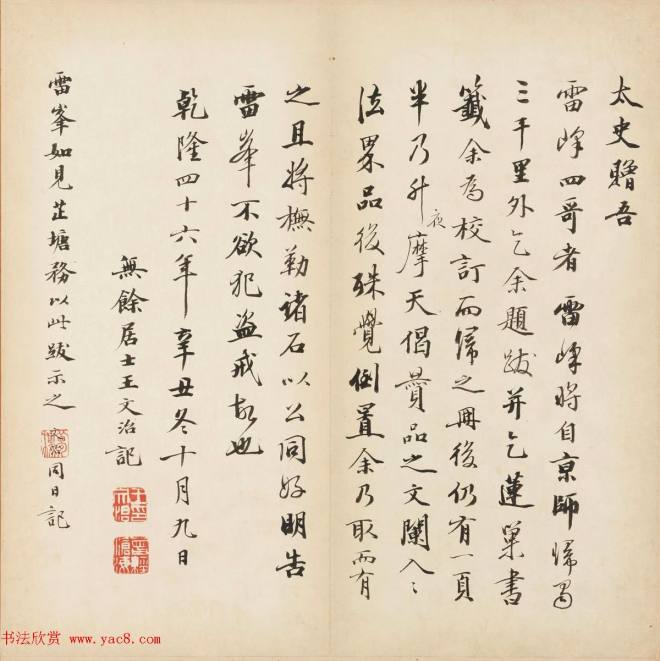 太史贈吾
雷峰四哥者雷峰將自京師歸蜀
三千里外乞余題跋并乞蓮巢書
籤余為校訂而歸之冊後仍有一頁
半乃升夜摩天偈讚品之文闌入入
法界品後殊覺倒置余乃取而有
之且將橅勒諸石以公同好明告
雷峯不欲犯盗戒故也
乾隆四十六年辛丑冬十月九日
無餘居士王文治記
雷峯如見芷塘務以此跋示之
同日記
书法欣赏 www.yac8.com